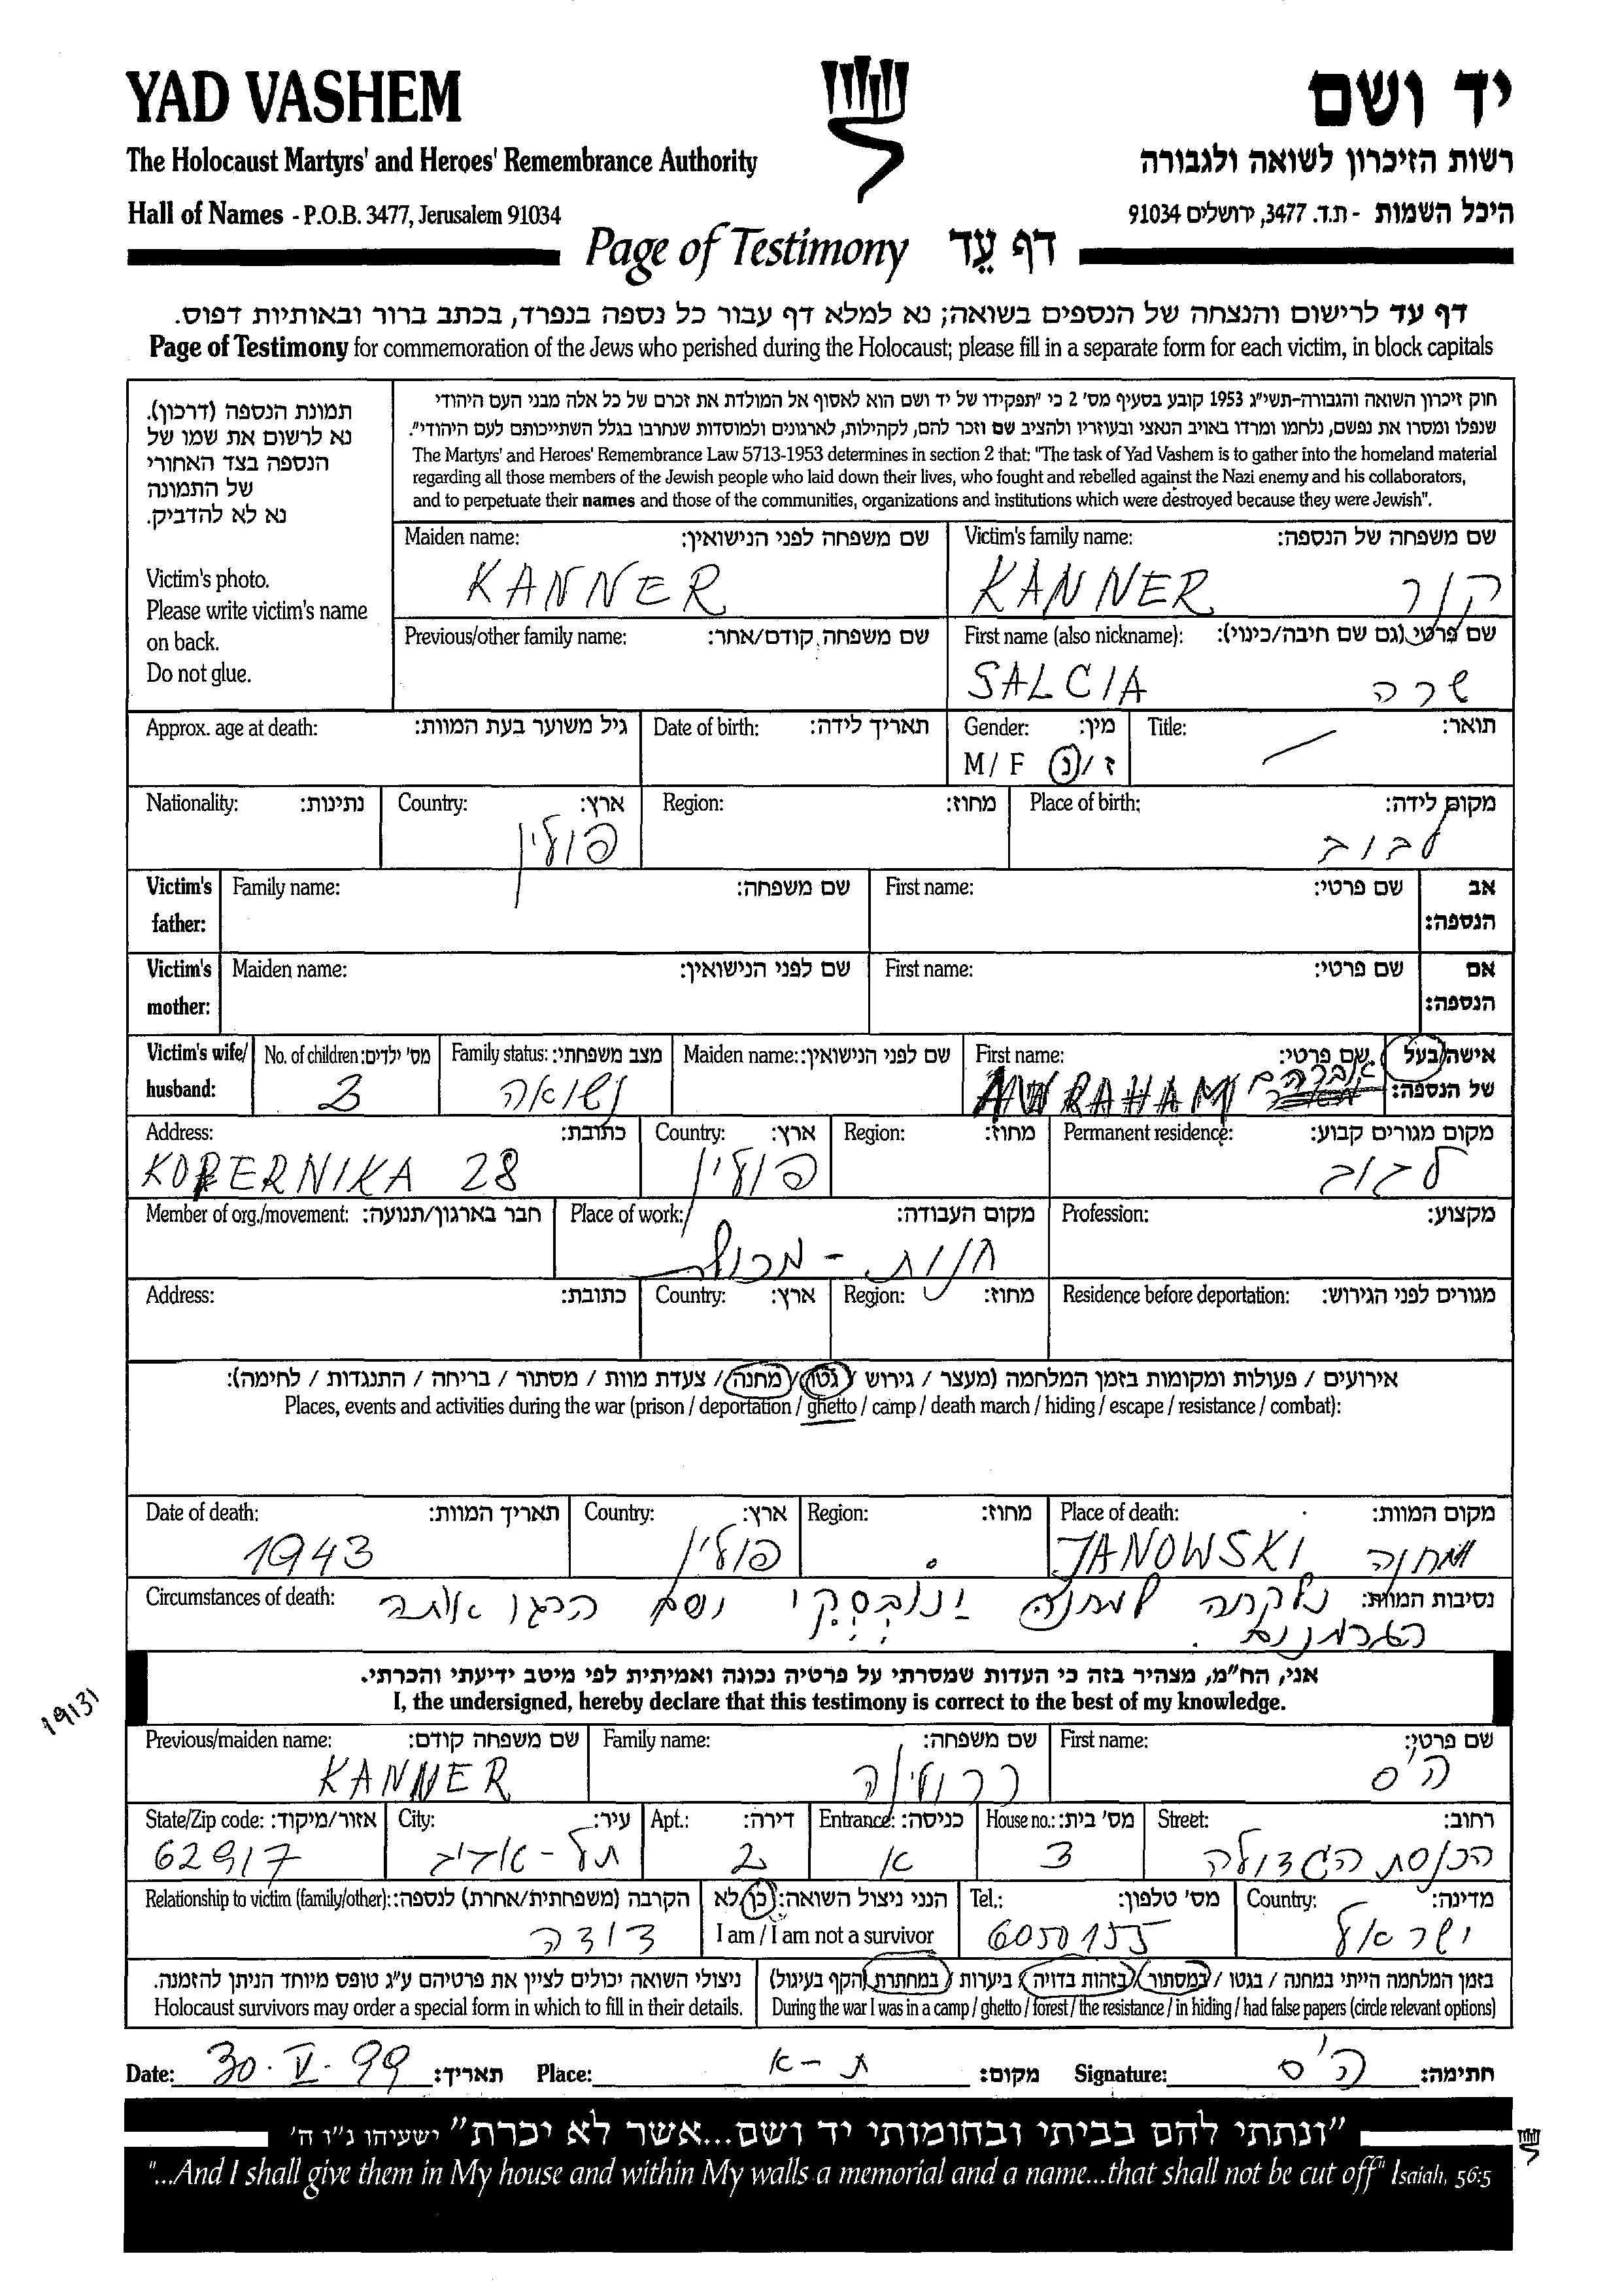 YAD VASHEM
יד ושם
The Holocaust Martyrs' and Heroes' Remembrance Authority
רשות הזיכרון לשואה ולגבורה
Hall of Names - P.O.B. 3477, Jerusalem 91034
היכל השמות - ת.ד. 3477, ירושלים 91034
Page of Testimony דף עֵד
דף עד לרישום והנצחה של הנספים בשואה; נא למלא דף עבור כל נספה בנפרד, בכתב ברור ובאותיות דפוס.
Page of Testimony for commemoration of the Jews who perished during the Holocaust; please fill in a separate form for each victim, in block capitals
תמונת הנספה (דרכון).
נא לרשום את שמו של
הנספה בצד האחורי
של התמונה
נא לא להדביק.
Victim's photo.
Please write victim's name
on back.
Do not glue.
חוק זיכרון השואה והגבורה-תשי"ג 1953 קובע בסעיף מס' 2 כי "תפקידו של יד ושם הוא לאסוף אל המולדת את זכרם של כל אלה מבני העם היהודי
שנפלו ומסרו את נפשם, נלחמו ומרדו באויב הנאצי ובעוזריו ולהציב שם וזכר להם, לקהילות, לארגונים ולמוסדות שנחרבו בגלל השתייכותם לעם היהודי".
The Martyrs' and Heroes' Remembrance Law 5713-1953 determines in section 2 that: "The task of Yad Vashem is to gather into the homeland material
regarding all those members of the Jewish people who laid down their lives, who fought and rebelled against the Nazi enemy and his collaborators,
and to perpetuate their names and those of the communities, organizations and institutions which were destroyed because they were Jewish".
Maiden name: שם משפחה לפני הנישואין:
KANNER
Victim's family name: שם משפחה של הנספה:
KANNER קנר
Previous/other family name: שם משפחה קודם/אחר:
First name (also nickname): שם פרטי (גם שם חיבה/כינוי):
SALCIA שרה
Approx. age at death: גיל משוער בעת המוות:
Date of birth: תאריך לידה:
Gender: מין:
M / F ז / נ
Title: תואר:
Nationality: נתינות:
Country: ארץ:
פולין
Region: מחוז:
Place of birth: מקום לידה:
לבוב
Victim's father: Family name: שם משפחה: First name: שם פרטי: אב הנספה:
Victim's mother: Maiden name: שם לפני הנישואין: First name: שם פרטי: אם הנספה:
Victim's wife/ husband:
No. of children: מס' ילדים:
3
Family status: מצב משפחתי:
נשואה
Maiden name: שם לפני הנישואין:
First name: שם פרטי:
AWRAHAM אברהם
אישה/בעל של הנספה:
Address: כתובת:
KOPERNIKA 28
Country: ארץ:
פולין
Region: מחוז:
Permanent residence: מקום מגורים קבוע:
לבוב
Member of org./movement: חבר בארגון/תנועה:
Place of work: מקום העבודה:
חנות - מכולת
Profession: מקצוע:
Address: כתובת:
Country: ארץ:
Region: מחוז:
Residence before deportation: מגורים לפני הגירוש:
אירועים / פעולות ומקומות בזמן המלחמה (מעצר / גירוש / גטו / מחנה / צעדת מוות / מסתור / בריחה / התנגדות / לחימה):
Places, events and activities during the war (prison / deportation / ghetto / camp / death march / hiding / escape / resistance / combat):
Date of death: תאריך המוות:
1943
Country: ארץ:
פולין
Region: מחוז:
Place of death: מקום המוות:
JANOWSKI מחנה
Circumstances of death: נסיבות המוות:
נלקחה למחנה ינובסקי ושם הרגו אותה
הגרמנים.
אני, הח"מ, מצהיר בזה כי העדות שמסרתי על פרטיה נכונה ואמיתית לפי מיטב ידיעתי והכרתי.
I, the undersigned, hereby declare that this testimony is correct to the best of my knowledge.
19131
Previous/maiden name: שם משפחה קודם:
KANNER
Family name: שם משפחה:
First name: שם פרטי:
State/Zip code: אזור/מיקוד:
62917
City: עיר:
תל-אביב
Apt.: דירה:
2
Entrance: כניסה:
א
House no.: מס' בית:
3
Street: רחוב:
הכנסת הגדולה
Relationship to victim (family/other): הקרבה (משפחתית/אחרת) לנספה:
דודה
הנני ניצול השואה: כן / לא
I am / I am not a survivor
Tel.: מס' טלפון:
6050155
Country: מדינה:
ישראל
ניצולי השואה יכולים לציין את פרטיהם ע"ג טופס מיוחד הניתן להזמנה.
Holocaust survivors may order a special form in which to fill in their details.
בזמן המלחמה הייתי במחנה / בגטו / במסתור / בזהות בדויה / ביערות / במחתרת (הקף בעיגול)
During the war I was in a camp / ghetto / forest / the resistance / in hiding / had false papers (circle relevant options)
Date: 30.V.99 תאריך: Place: ת-א מקום: Signature: חתימה:
"ונתתי להם בביתי ובחומותי יד ושם...אשר לא יכרת" ישעיהו נ"ו ה'
"...And I shall give them in My house and within My walls a memorial and a name...that shall not be cut off" Isaiah, 56:5